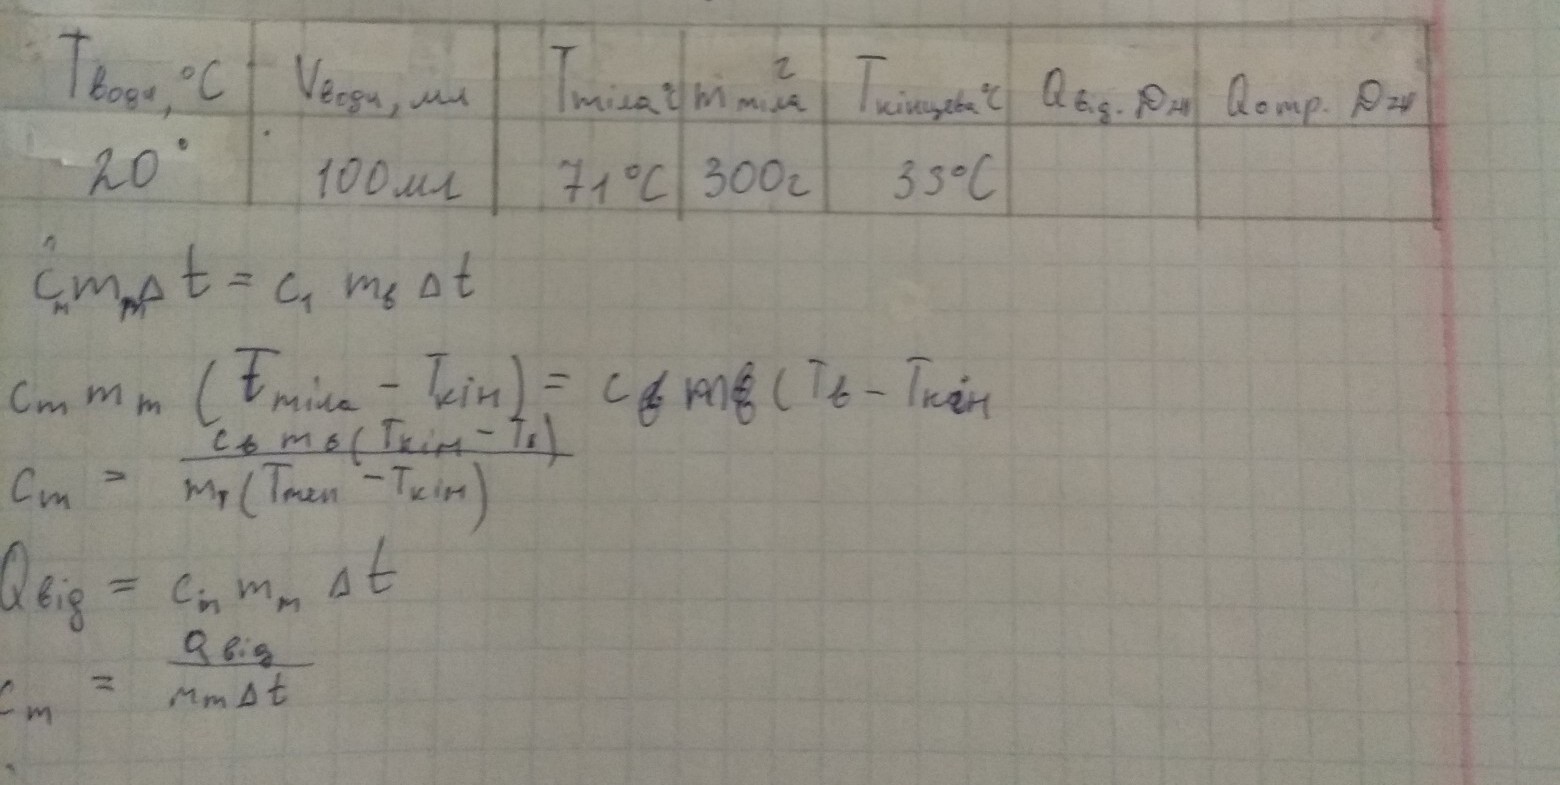 Tводи, °C Vводи, мл Tтіла °C m тіла г Tкінцева °C Qвід. Дж Qотр. Дж
20° 100мл 71°C 300г 35°C
mтΔt = c₁ mв Δt
cт mт (tтіла - Tкін) = cв mв (Tв - Tкін
cт = cв mв (Tкін - Tв) / mт (Tтіл - Tкін)
Qвід = cт mт Δt
cт = Qвід / mтΔt